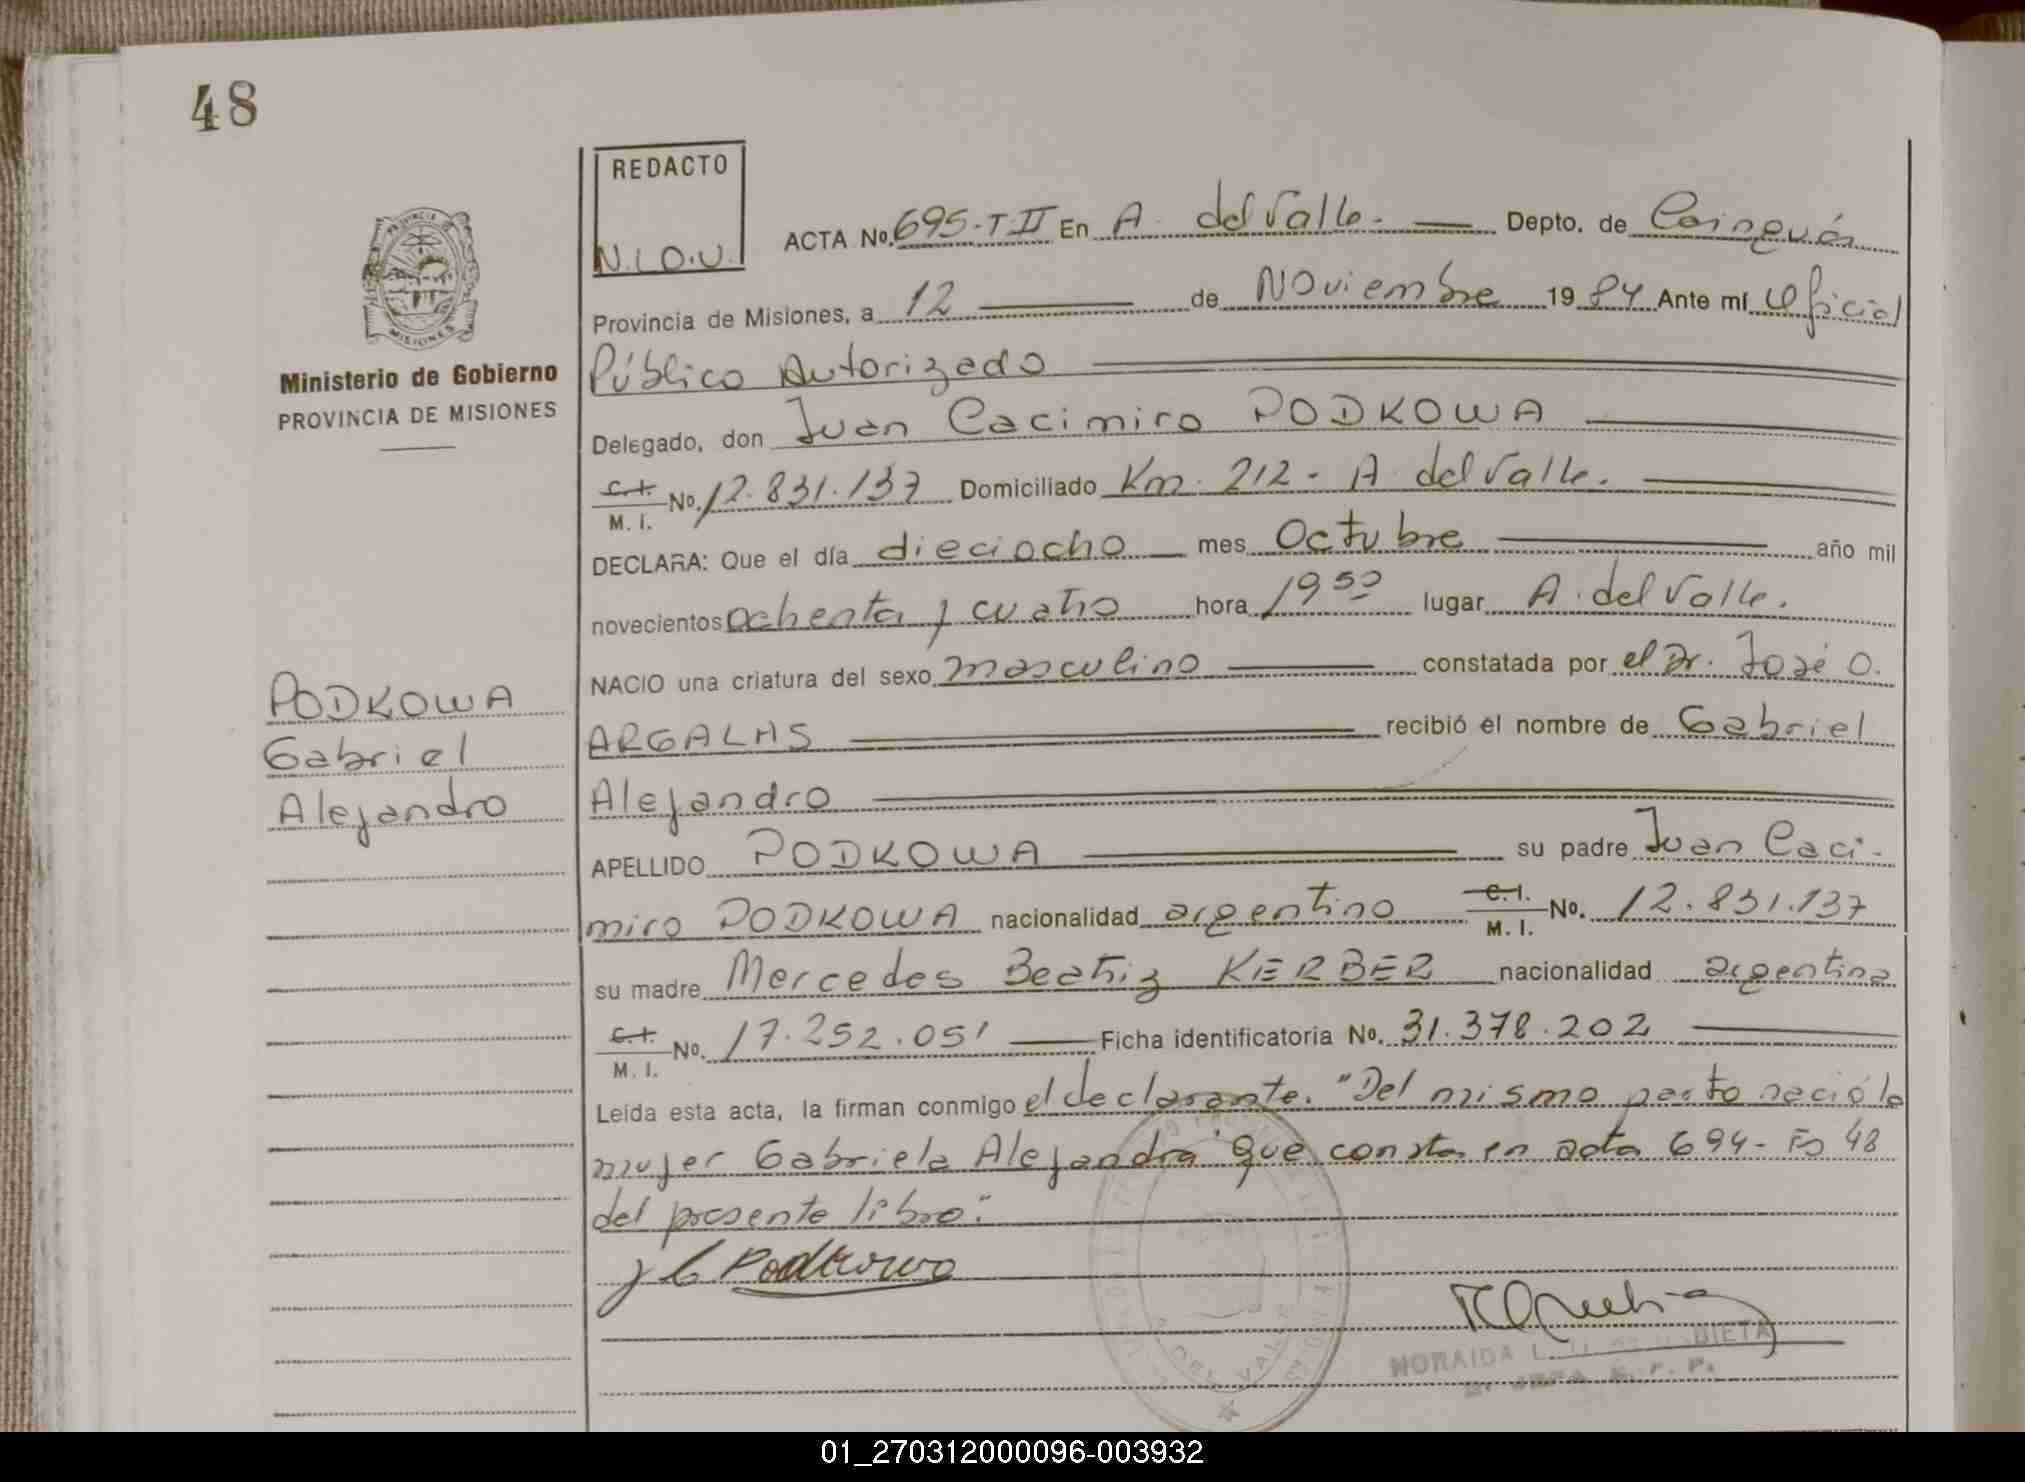 48
REDACTO
N.I.O.U.
ACTA No. 695-T-II En A. del Valle.- Depto. de Cainguás
Provincia de Misiones, a 12 de Noviembre 19 84 Ante mí Oficial
Público Autorizado
Delegado, don Juan Cacimiro PODKOWA
C.I. M. I. No. 12.831.137 Domiciliado Km. 212 - A. del Valle.
DECLARA: Que el día dieciocho mes Octubre año mil
novecientos ochenta y cuatro hora 19 50 lugar A. del Valle.
NACIO una criatura del sexo masculino constatada por el Dr. José O.
ARGALAS recibió el nombre de Gabriel
Alejandro
APELLIDO PODKOWA su padre Juan Caci-
miro PODKOWA nacionalidad argentino C.I. M. I. No. 12.831.137
su madre Mercedes Beatriz KERBER nacionalidad argentina
C.I. M. I. No. 17.252.051 Ficha identificatoria No. 31.378.202
Leída esta acta, la firman conmigo el declarante. "Del mismo parto nació la
mujer Gabriela Alejandra que consta en acta 694- Fº 48
del presente libro."
J C Podkowa
NORAIDA
PROVINCIA
MISIONES
Ministerio de Gobierno
PROVINCIA DE MISIONES
PODKOWA
Gabriel
Alejandro
01_270312000096-003932